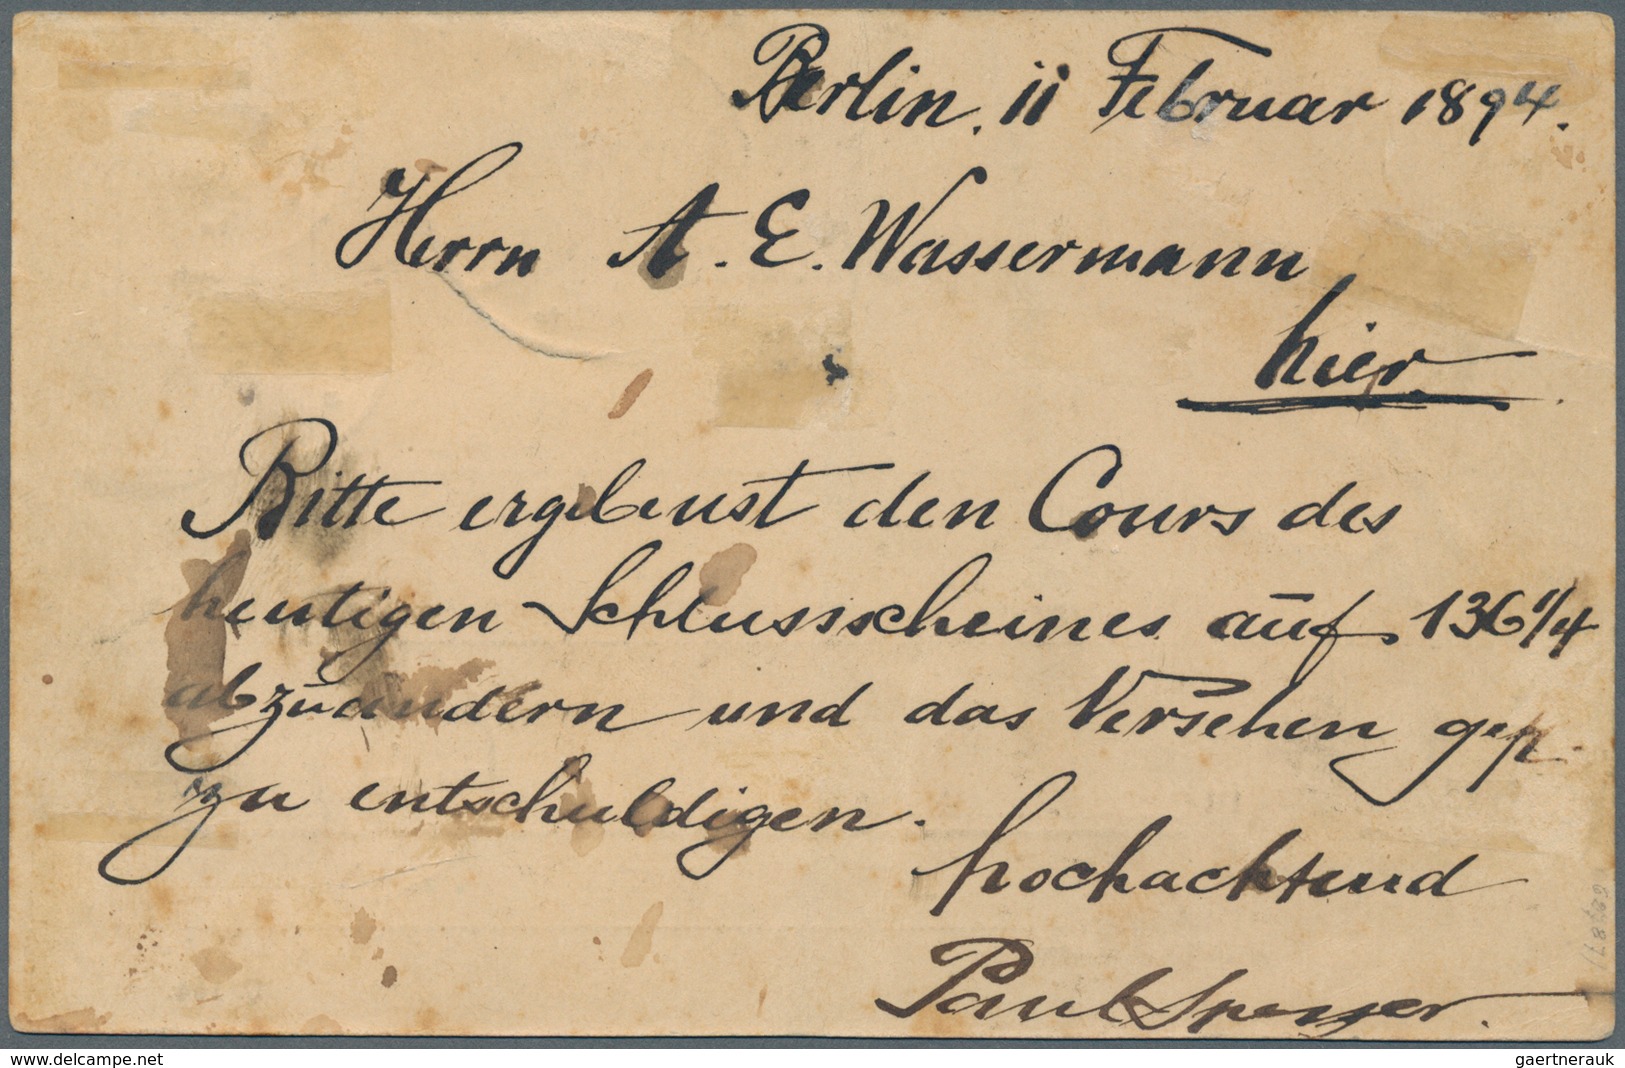 Berlin, 11 Februar 1894.
Herrn A. E. Wassermann
hier
Bitte ergebenst den Cours des
heutigen Schlussscheines auf 136 1/4
abzuändern und das Versehen gefl.
zu entschuldigen.
hochachtend
Paul
delcampe.net
gaertnerauk